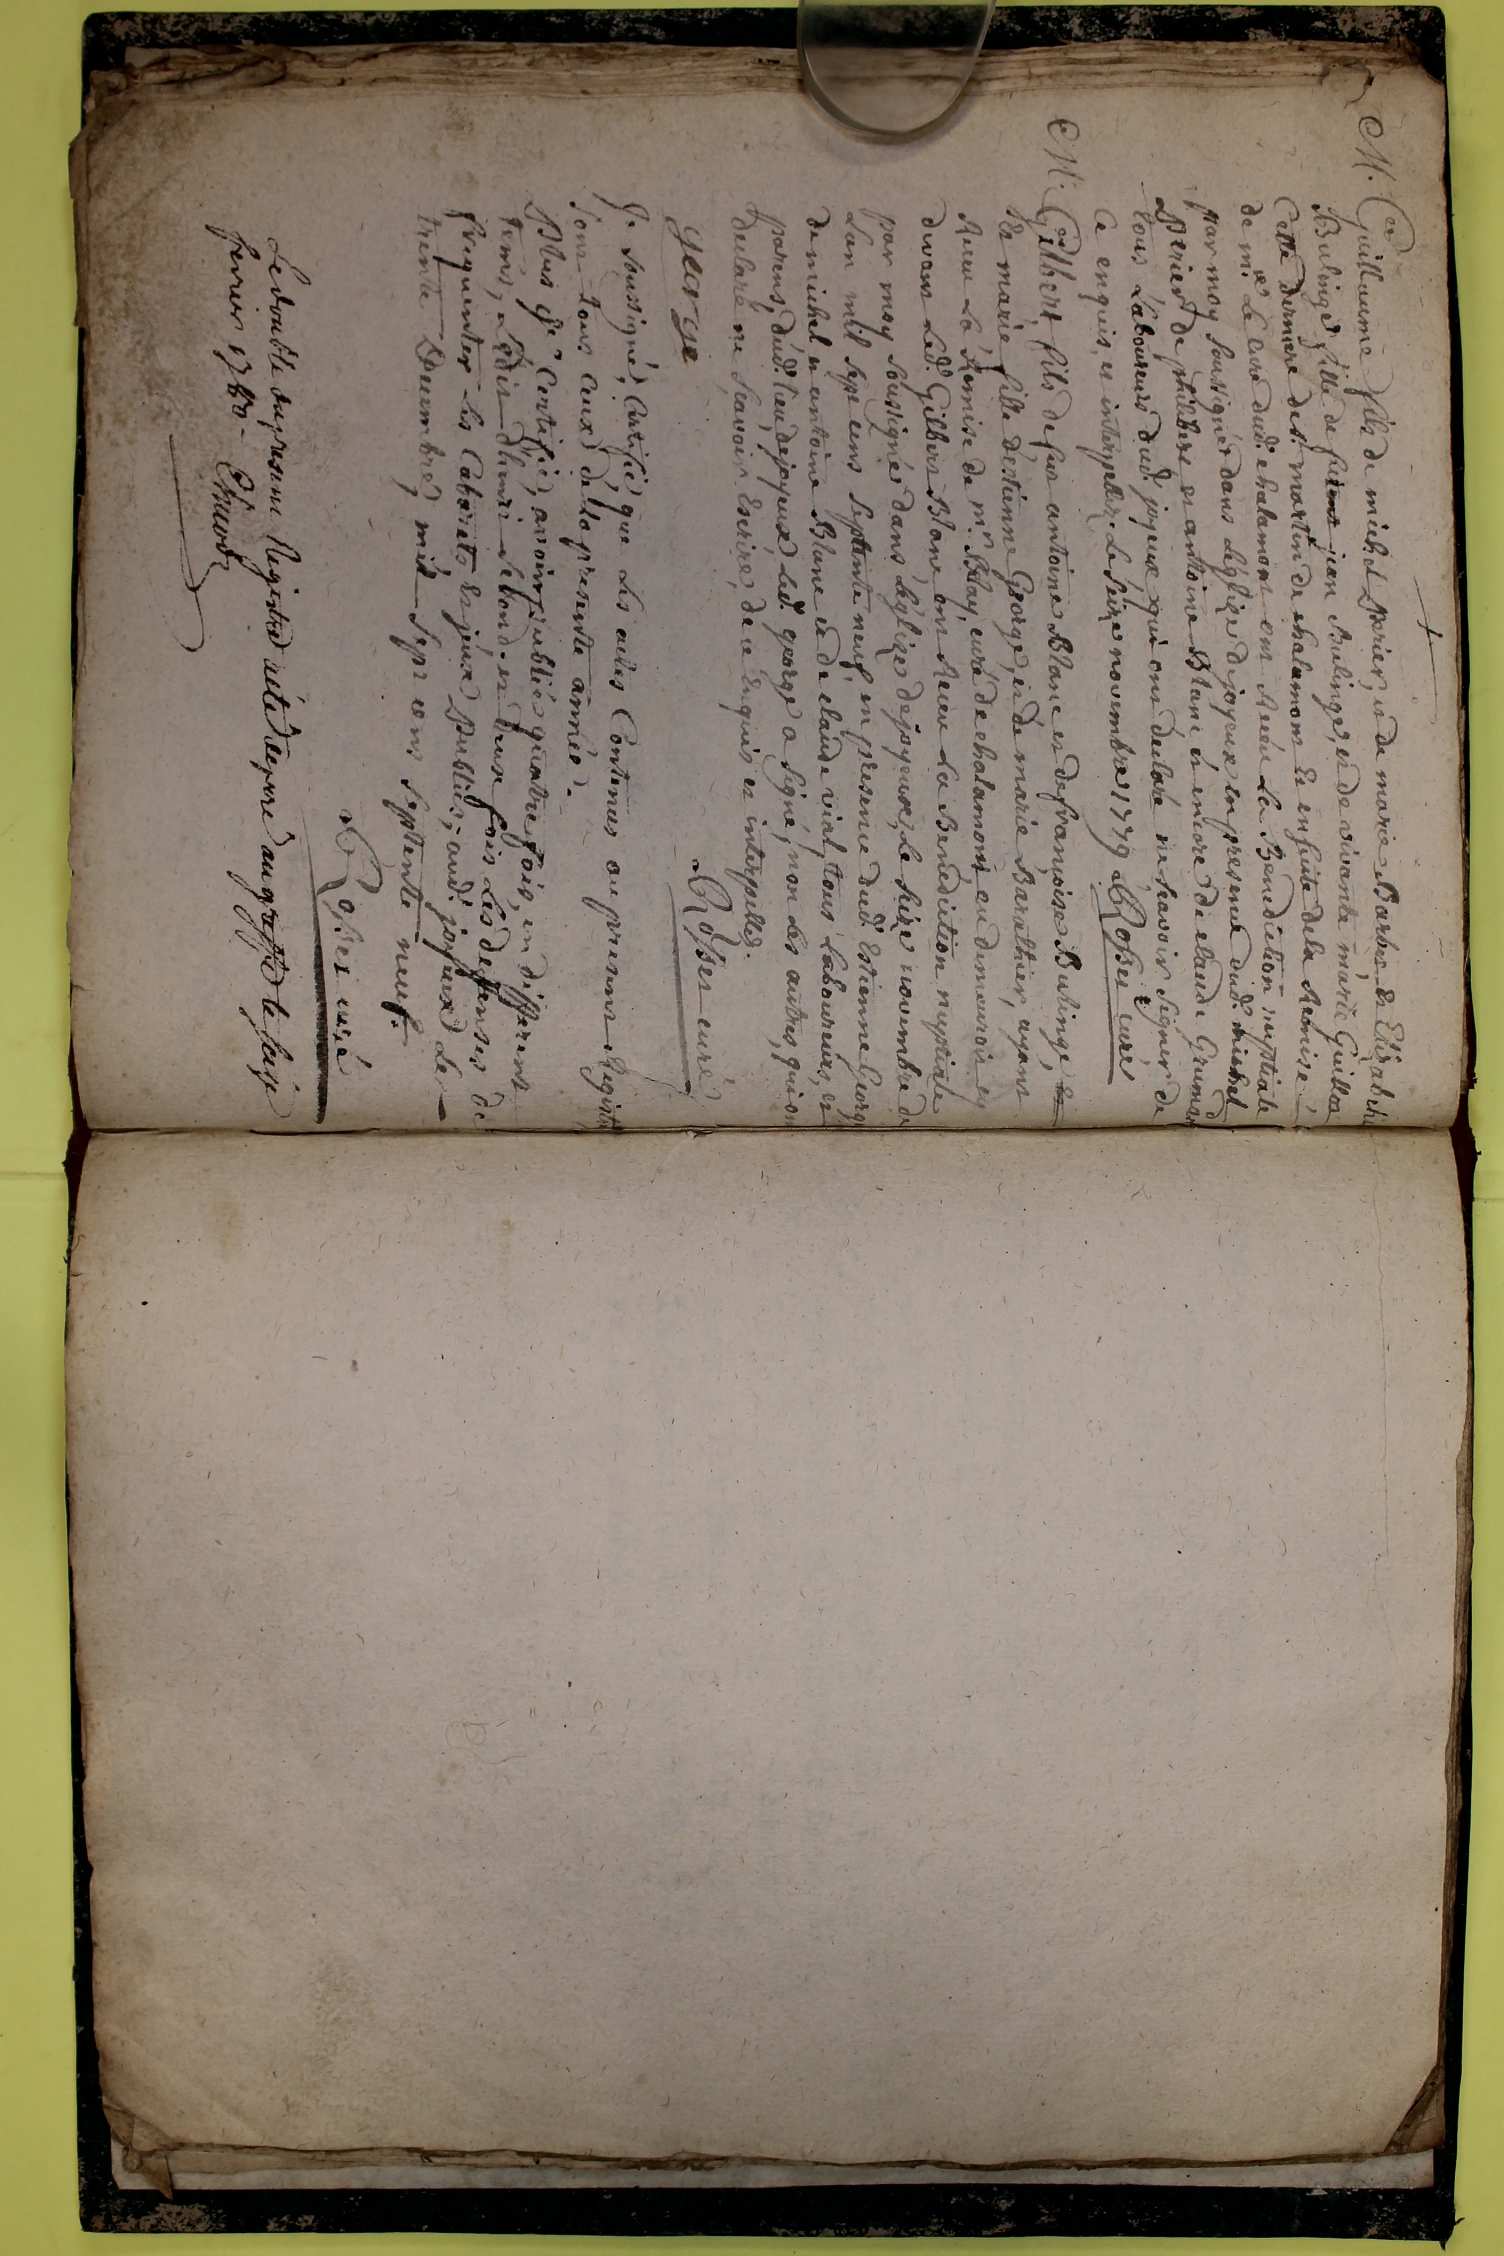 M. Guillaume fils de michel Perier, et de marie Barbier et Elizabeth
Bulinge fille de feu jean Bulinge, et de vivante marie Guillot
Cette derniere de st martin de chalamont et ensuite de la Remise
de mre Le curé dudt chalamont ont Reçeu La Benediction nuptiale
par moy soussigné dans L'église de joyeux en presence dudt michel
Perier, de philibert et antoine Blanc et encore de claude Grumod
tous Laboureurs dudt joyeux qui ont declaré ne sçavoir signer de
Ce enquis, et interpellez. Le seize novembre 1779. Rosset curé
M. Gilbert fils de feu antoine Blanc et de françoise Bulinge et
et marie fille d'estienne George, et de marie Barathier, ayant
Receu La Remise de mr Blay, curé de chalamont, ou demeuroit cy
devant Ledt Gilbert Blanc ont Receu La Benediction nuptiale
par moy soussigné dans L'églize de joyeux, Le seize novembre de
L'an mil sept cens septente neuf, en presence dudt Estienne George
de michel et antoine Blanc et de claude vial, tous Laboureurs, et
parens, dudt lieu de joyeux, Ledt george a signé, non Les autres, qui ont
declaré ne sçavoir Escrire, de ce enquis et interpellés.
george
Rosset curé
Je soussigné, Certifié que Les actes Contenus au present Registre
Sont tous Ceux de la presente année.
Plus Je Certifié, avoir publié quattre fois, en differents
tems, L'edit d'henri second. et deux fois Les deffenses de
frequenter les Cabarets et jeux Publics, audt joyeux Le
trente Decembre, mil sept cens septente neuf.
Rosset curé
Le double du present Registre a été deposé au greffe le seize
fevrier 1780.